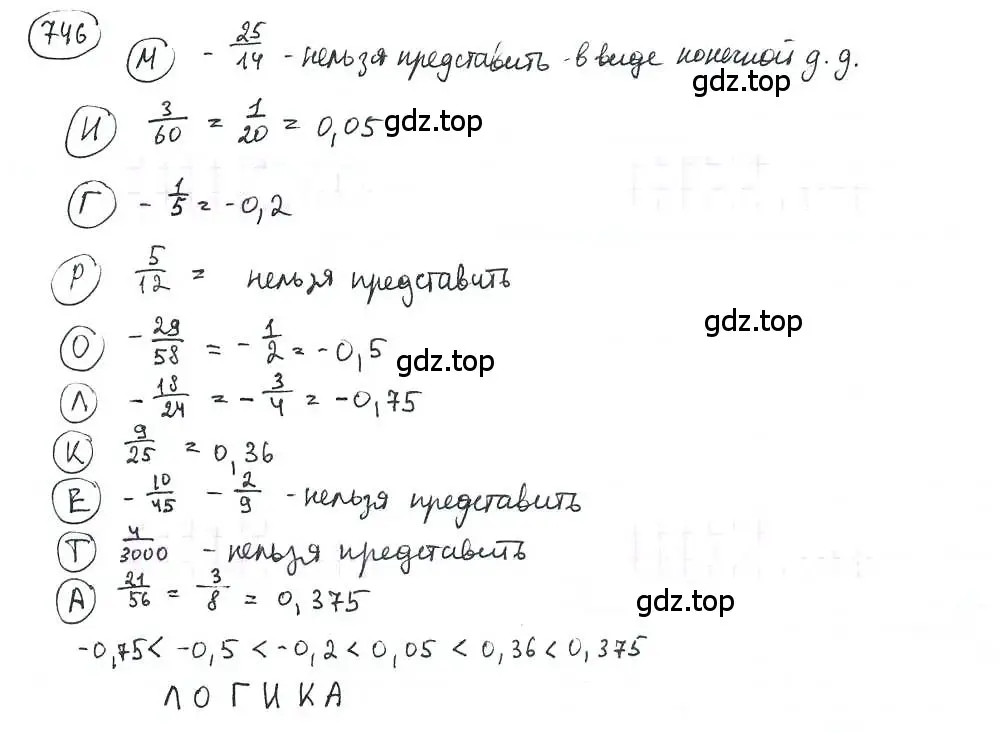 746
М - 25/14 - нельзя представить в виде конечной д.д.
gdz.top
И 3/60 = 1/20 = 0,05 gdz.top
Г - 1/5 = -0,2
Р 5/12 = нельзя представить
gdz.top
О - 29/58 = - 1/2 = -0,5 gdz.top
Л - 18/24 = - 3/4 = -0,75
К 9/25 = 0,36
Е - 10/45 - 2/9 - нельзя представить
Т 4/3000 - нельзя представить
А 21/56 = 3/8 = 0,375
gdz.top
-0,75 < -0,5 < -0,2 < 0,05 < 0,36 < 0,375
Л О Г И К А